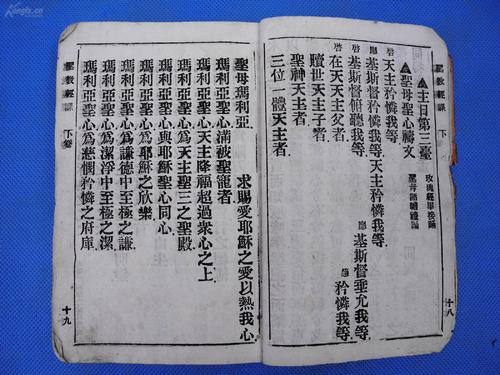 聖教經課 下卷 十八
▲主日第三臺 玫瑰經畢後誦
▲聖母聖心禱文
啓天主矜憐我等 天主矜憐我等 應基斯督矜憐我等
應基斯督俯聽我等 應基斯督垂允我等
啓在天天主父者 應矜憐我等
贖世天主子者
聖神天主者
三位一體天主者
聖母瑪利亞 求賜愛耶穌之愛以熱我心
瑪利亞聖心滿被聖寵者
瑪利亞聖心天主降福超過衆心之上
瑪利亞聖心與耶穌聖心同心
瑪利亞聖心爲天主聖三之聖殿
瑪利亞聖心爲耶穌之欣樂
瑪利亞聖心爲謙德中至極之謙
瑪利亞聖心爲潔淨中至極之潔
瑪利亞聖心爲慈憫矜憐之府庫
聖教經課 下卷 十九